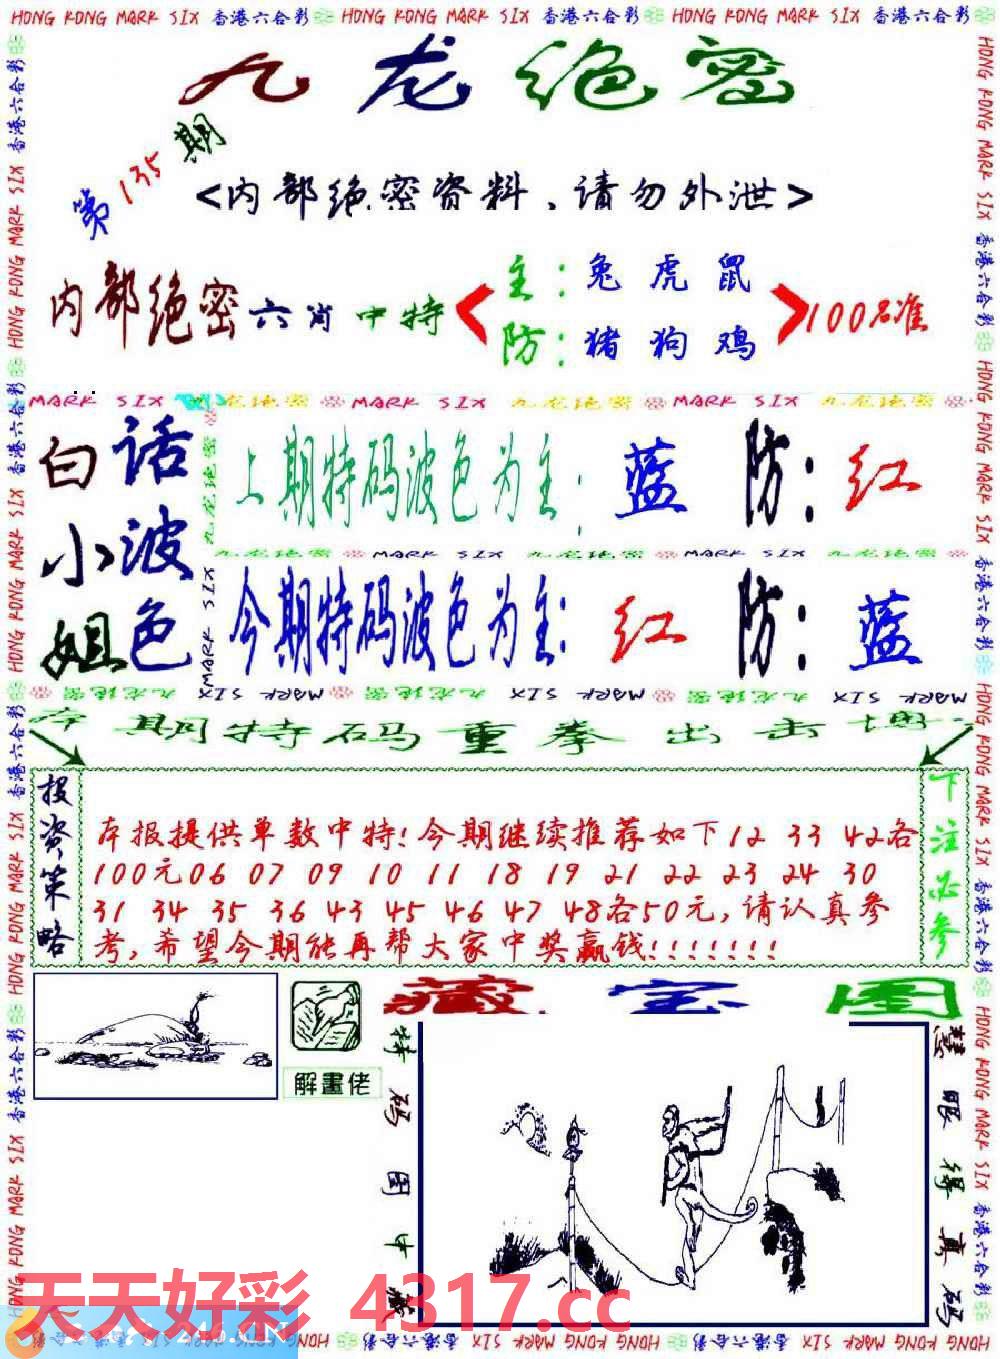 HONG KONG MARK SIX 香港六合彩 HONG KONG MARK SIX 香港六合彩 HONG KONG MARK SIX 香港六合彩
九龙绝密
第135期
<内部绝密资料、请勿外泄>
内部绝密六肖中特
主：兔 虎 鼠
防：猪 狗 鸡
100%准
MARK SIX 九龙绝密 MARK SIX 九龙绝密 MARK SIX 九龙绝密
白小姐
话波色
上期特码波色为主：蓝 防：红
九龙绝密 MARK SIX 九龙绝密 MARK SIX 九龙绝密
今期特码波色为主：红 防：蓝
本期特码重拳出击
投资策略
本报提供单数中特!今期继续推荐如下12 33 42各
100元06 07 09 10 11 18 19 21 22 23 24 30
31 34 35 36 43 45 46 47 48各50元,请认真参
考,希望今期能再帮大家中奖赢钱!!!!!!!
下注必参
藏宝图
解畫佬
特码图中藏
慧眼得真码
天天好彩 4317.cc